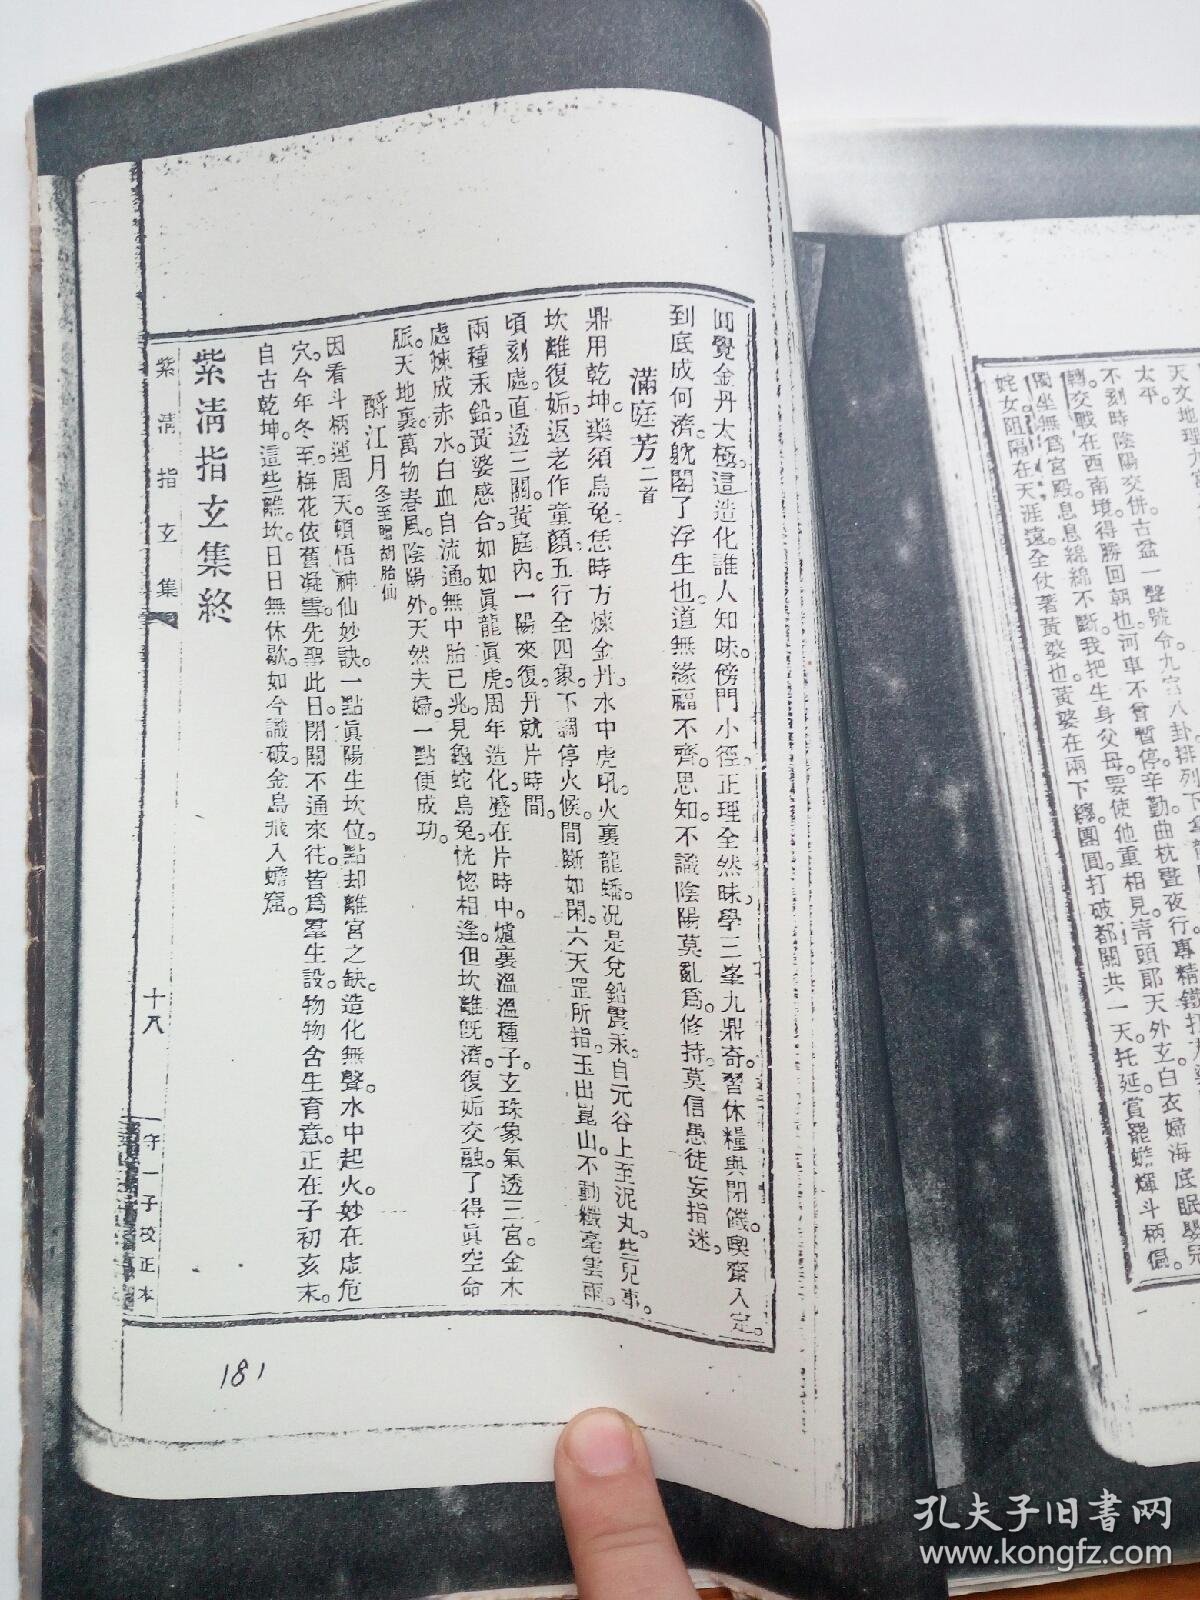 圓覺金丹太極。這造化誰人知味。傍門小徑。正理全然昧。學三峯九鼎奇。習休糧與閉饑。奧齋入定。
到底成何濟。躭閣了浮生也。道無緣福不齊。思知。不識陰陽莫亂爲。修持。莫信愚徒妄指迷。
滿庭芳二首
鼎用乾坤。藥須烏兔。恁時方煉金丹。水中虎吼。火裏龍蟠。況是兌鉛震汞。自元谷上至泥丸。些兒事。
坎離復姤。返老作童顏。五行全四象。下調停火候。間斷如閑。六天罡所指。玉出崑山。不動纖毫雲雨。
頃刻處。直透三關。黃庭內。一陽來復。丹就片時間。
兩種汞鉛。黃婆感合。如如眞龍眞虎。周年造化。蹙在片時中。爐裏溫溫種子。玄珠象氣透三宮。金木
處煉成赤水。白血自流通。無中胎已兆。見龜蛇烏兔。恍惚相逢。但坎離旣濟。復姤交融。了得眞空命
脈。天地裏。萬物春風。陰陽外。天然夫婦。一點便成功。
酹江月冬至贈胡胎仙
因看斗柄運周天。頓悟神仙妙訣。一點眞陽生坎位。點却離宮之缺。造化無聲。水中起火。妙在虛危
穴。今年冬至。梅花依舊凝雪。先聖此日。閉關不通來往。皆爲羣生設。物物含生育意。正在子初亥末。
自古乾坤。這些離坎。日日無休歇。如今識破。金烏飛入蟾窟。
紫淸指玄集終
紫淸指玄集
十八
守一子校正本
181
太平。
不刻時陰陽交併。古盆一聲號令。九宮八卦排列下
轉交戰在西南境。得勝回朝也。河車不曾暫停。辛勤。曲枕曁夜行。專精。
獨坐無爲宮殿。息息綿綿不斷。我把生身父母。要使他重相見。菁頭郎天外玄。白衣婦海底眠。
姹女阻隔在天涯遠。全仗著黃婆也。黃婆在兩下纏。團圓。打破都關共一天。托延。賞罷蟾輝斗柄偏。
孔夫子旧書网
www.kongfz.com